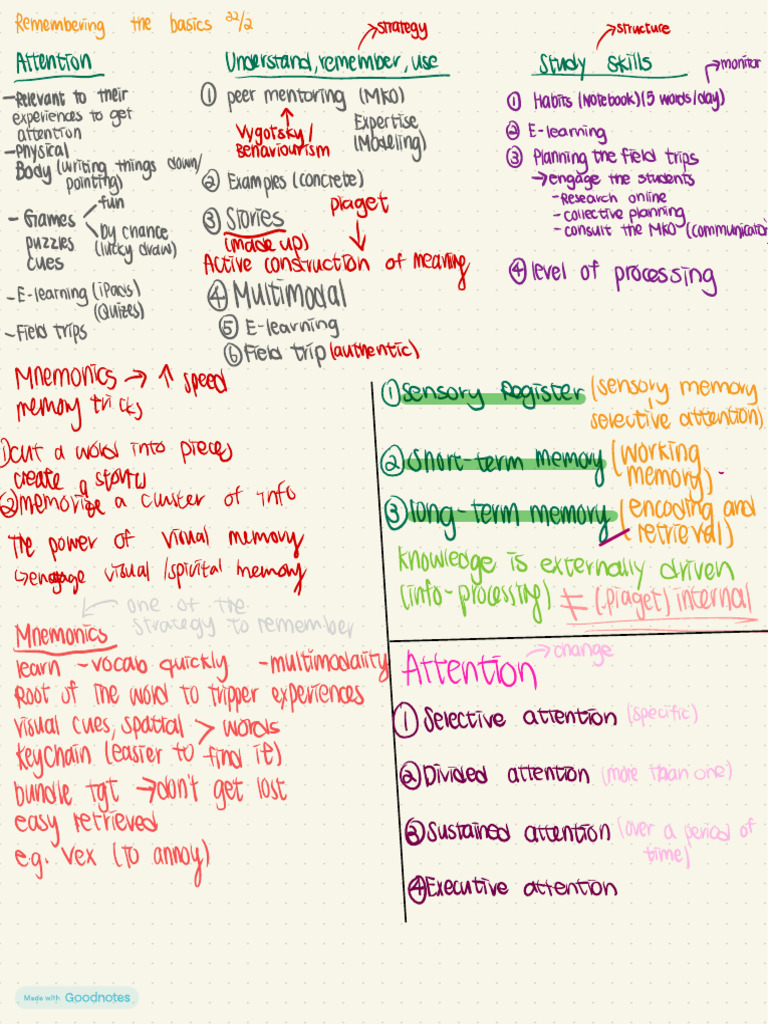 Remembering the basics 22/2
Attention
- Relevant to their
experiences to get
attention
- Physical
Body (writing things down/
pointing)
- Games
puzzles
cues
fun
by chance
(lucky draw)
- E-learning (iPads)
(Quizes)
- Field trips
→ strategy
Understand, remember, use
① peer mentoring (MKO)
Vygotsky/
Behaviourism
Expertise
(Modeling)
② Examples (concrete)
③ Stories
(made up)
piaget
Active construction of meaning
④ Multimodal
⑤ E-learning
⑥ Field trip (authentic)
→ structure
Study skills
→ monitor
① Habits (Notebook) (5 words/day)
② E-learning
③ Planning the field trips
→ engage the students
- Research online
- collective planning
- consult the MKO (communicator
④ level of processing
Mnemonics → ↑ speed
memory tricks
① cut a word into pieces
create a story
② memorize a cluster of info
The power of visual memory
↳ engage visual /spivital memory
one of the
strategy to remember
Mnemonics
learn - vocab quickly - multimodality
Root of the word to tripper experiences
visual cues, spatial > words
keychain (easier to find it)
bundle tgt → don't get lost
easy retrieved
e.g. vex (to annoy)
① Sensory Register (sensory memory
selective attention)
② Short-term memory (working
memory)
③ long-term memory (encoding and
retrieval)
knowledge is externally driven
(info-processing) ≠ (piaget) internal
Attention
→ change
① Selective attention (specific)
② Divided attention (more than one)
③ Sustained attention (over a period of
time)
④ Executive attention
Made with Goodnotes